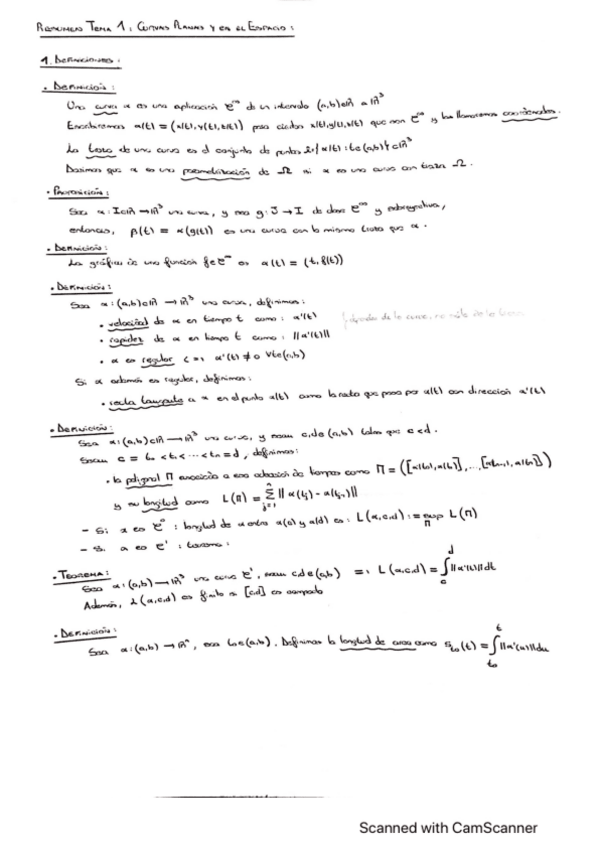 RESUMEN TEMA 1: CURVAS PLANAS Y EN EL ESPACIO:
1. DEFINICIONES:
• DEFINICIÓN:
Una curva α es una aplicación C^∞ de un intervalo (a,b)⊂ℝ a ℝ³
Escribiremos α(t) = (x(t), y(t), z(t)) para ciertas x(t), y(t), z(t) que son C^∞ y las llamaremos coordenadas.
La traza de una curva es el conjunto de puntos Ω = {α(t) : t∈(a,b)} ⊂ ℝ³
Decimos que α es una parametrización de Ω si α es una curva con traza Ω.
• PROPOSICIÓN:
Sea α: I⊂ℝ → ℝ³ una curva, y sea g: J → I de clase C^∞ y sobreyectiva,
entonces, β(t) = α(g(t)) es una curva con la misma traza que α.
• DEFINICIÓN:
La gráfica de una función f∈C^∞ es α(t) = (t, f(t))
• DEFINICIÓN:
Sea α: (a,b)⊂ℝ → ℝ³ una curva, definimos:
• velocidad de α en tiempo t como: α'(t)
depende de la curva, no sólo de la traza
• rapidez de α en tiempo t como: ||α'(t)||
• α es regular <=> α'(t) ≠ 0 ∀t∈(a,b)
Si α además es regular, definimos:
• recta tangente a α en el punto α(t) como la recta que pasa por α(t) con dirección α'(t)
• DEFINICIÓN:
Sea α: (a,b)⊂ℝ → ℝ³ una curva, y sean c,d∈(a,b) tales que c<d.
Sean c = t₀ < t₁ < ... < tₙ = d, definimos:
• la poligonal Π asociada a esa colección de tiempos como Π = ([α(t₀), α(t₁)], ..., [α(tₙ₋₁), α(tₙ)])
y su longitud como L(Π) = Σ_{j=1}^{n} ||α(t_j) - α(t_{j-1})||
- Si α es C⁰: longitud de α entre α(c) y α(d) es: L(α,c,d) := sup_Π L(Π)
- Si α es C¹: teorema:
• TEOREMA:
Sea α: (a,b) → ℝ³ una curva C¹, sean c,d∈(a,b) => L(α,c,d) = ∫_c^d ||α'(t)|| dt
Además, L(α,c,d) es finita si [c,d] es compacto
• DEFINICIÓN:
Sea α: (a,b) → ℝⁿ, sea t₀∈(a,b). Definimos la longitud de arco como s_{t₀}(t) = ∫_{t₀}^t ||α'(u)|| du
Scanned with CamScanner